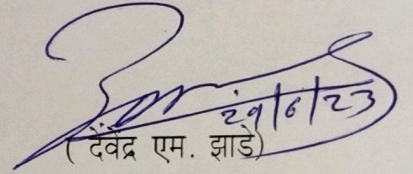 २९/६/२३
( देवेंद्र एम. झाडे)